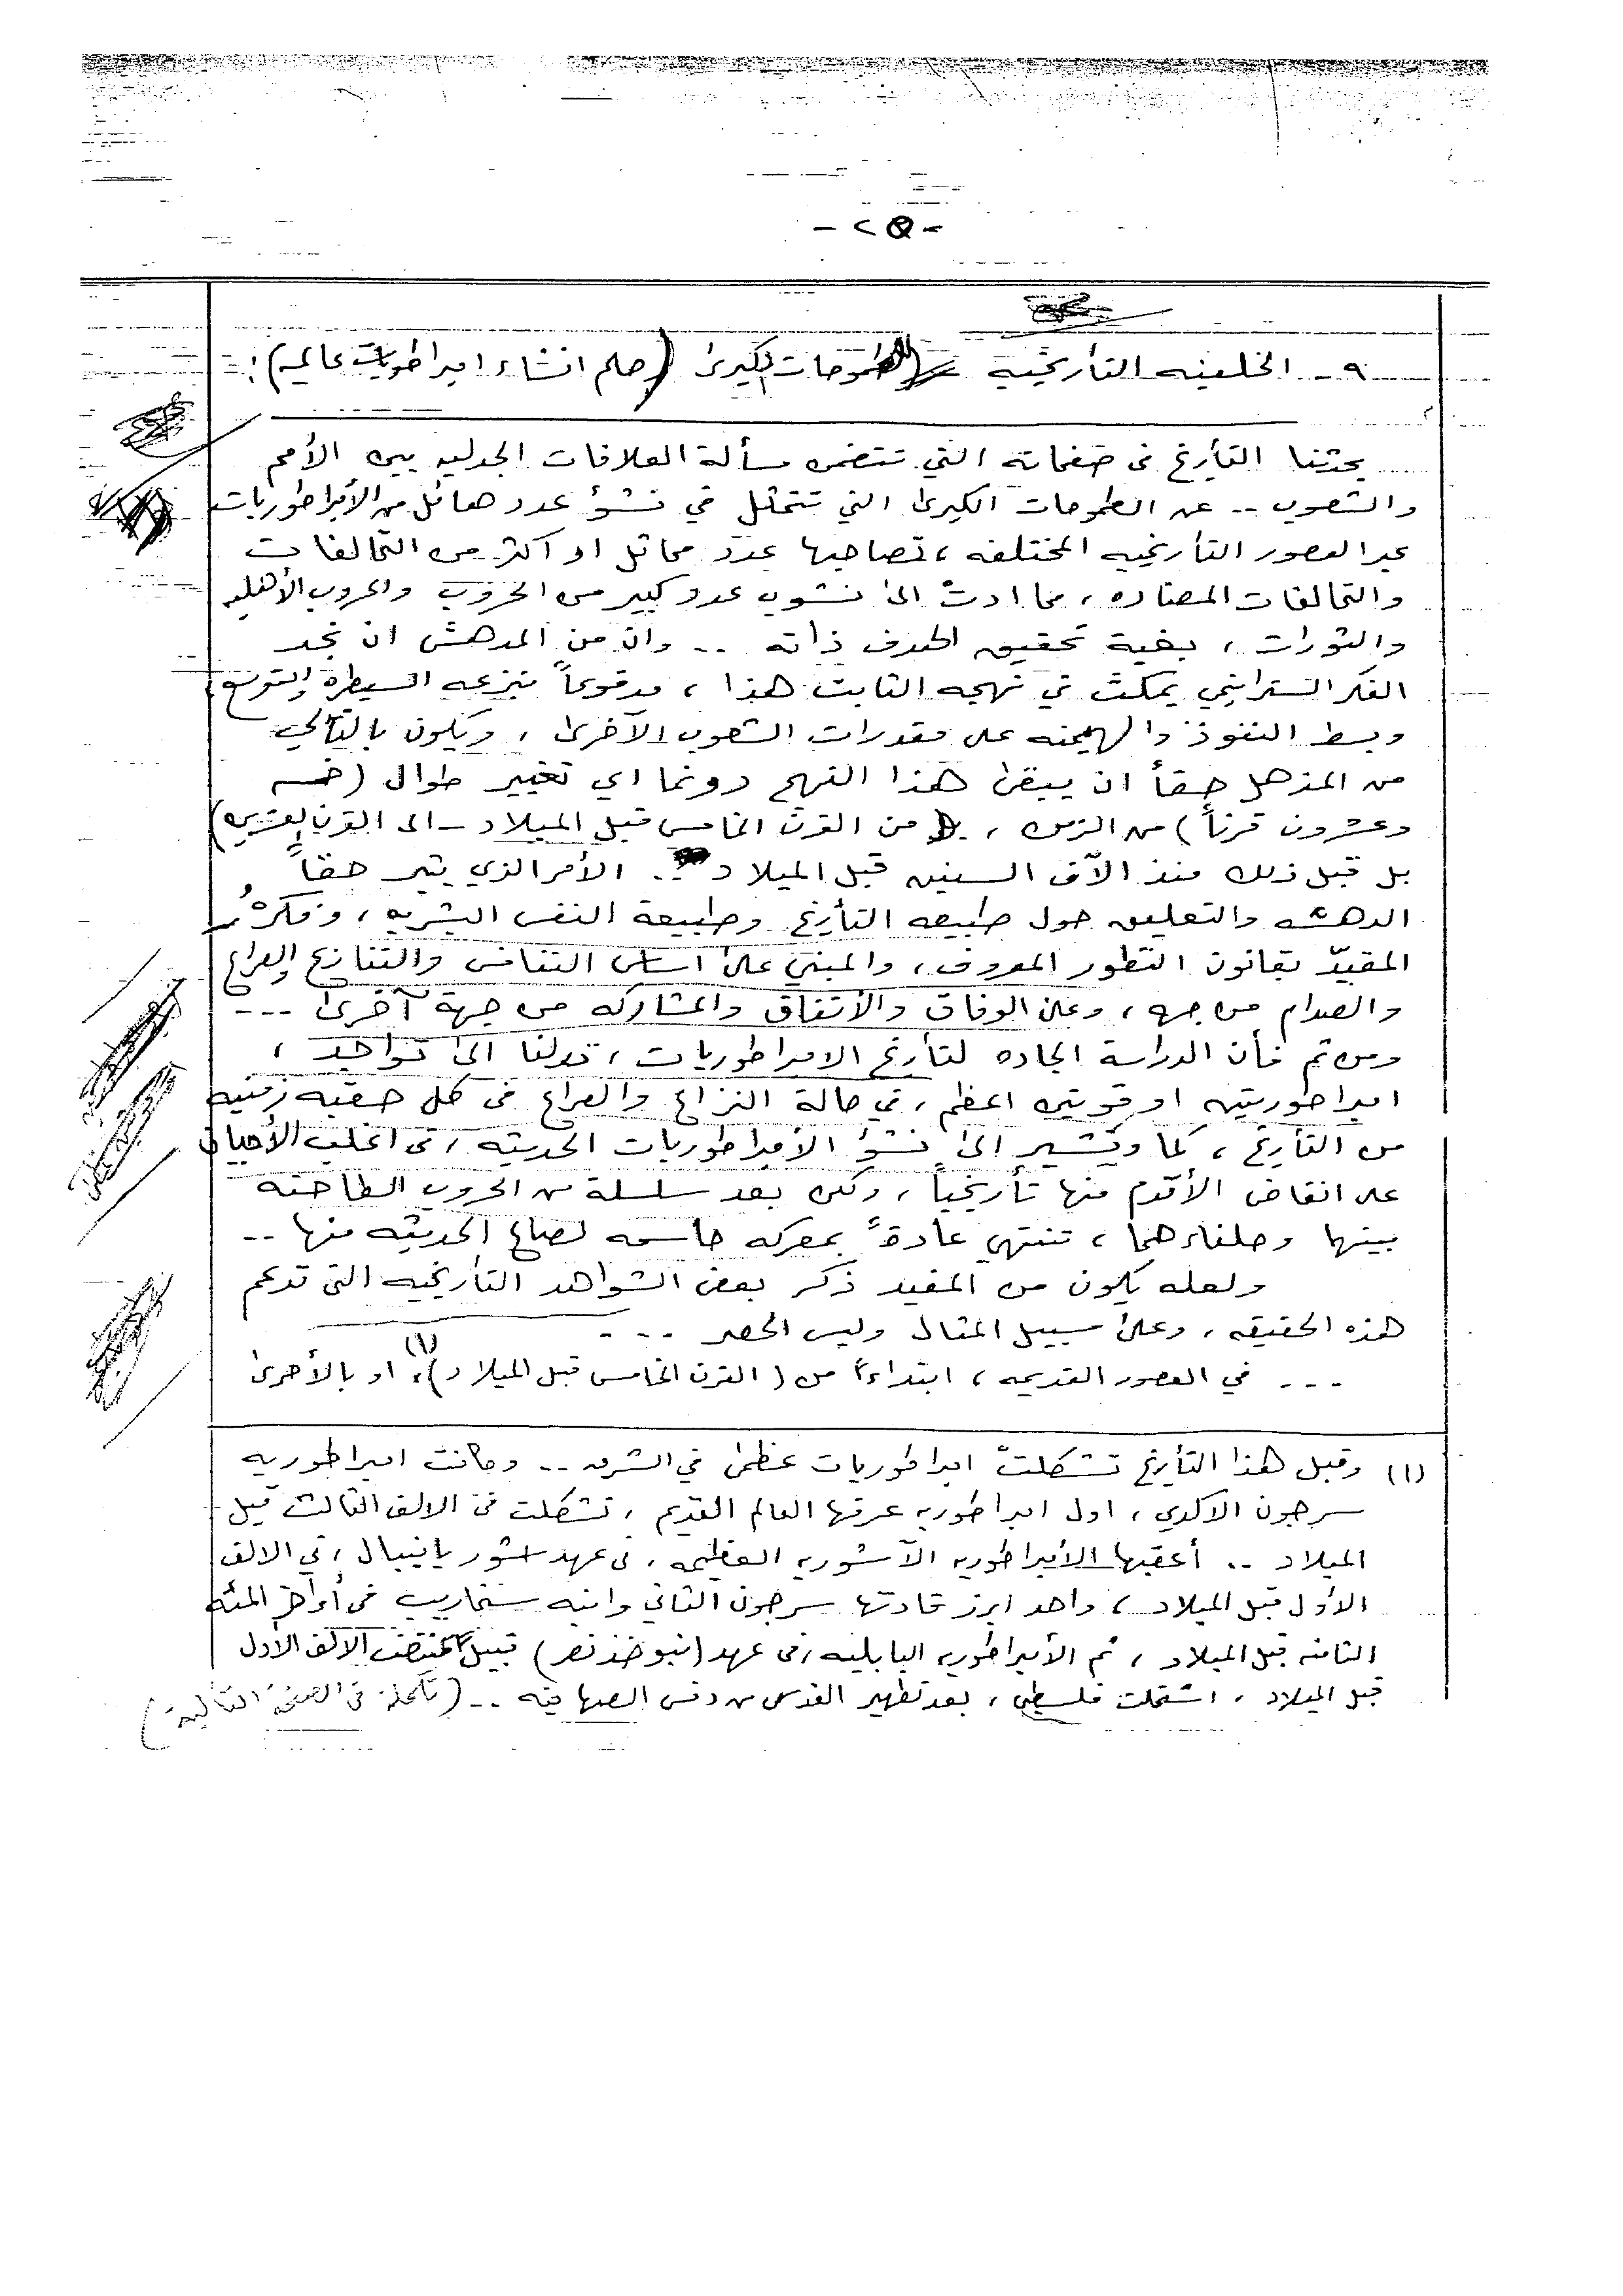 - ٢٥ -
٩ - الخلفيه التأريخيه للطموحات الكبرىٰ (حلم انشاء امبراطوريات عالميه) :
يحدثنا التأريخ في صفحاته التي تتضمن مسألة العلاقات الجدليه بين الأمم
والشعوب .. عن الطموحات الكبرىٰ التي تتمثل في نشؤ عدد هائل من الأمبراطوريات
عبر العصور التأريخيه المختلفه ، تصاحبها عدد مماثل او اكثر من التحالفات
والتحالفات المضاده ، مما ادت الىٰ نشوب عدد كبير من الحروب والحروب الأهليه
والثورات ، بغية تحقيق الهدف ذاته .. وان من المدهش ان نجد
الفكر الستراتيجي يمكث في نهجه الثابت هذا ، مدفوعاً بنزعه السيطرة والتوسع
وبسط النفوذ والهيمنه على مقدرات الشعوب الآخرىٰ ، ويكون بالتالي
من المذهل حقاً ان يبقىٰ هذا النهج دونما اي تغيير طوال (خمسه
وعشرون قرناً) من الزمن ، من القرن الخامس قبل الميلاد - الى القرن العشرين)
بل قبل ذلك منذ الآف السنين قبل الميلاد .. الأمر الذي يثير حقاً
الدهشه والتعليق حول طبيعه التأريخ وطبيعة النفس البشريه ، وفكرهُ
المقيدّ بقانون التطور المعروف ، والمبني علىٰ اساس التنافس والتنازع والصراع
والصدام من جهه ، وعلىٰ الوفاق والأتفاق والمشاركه من جهة آخرىٰ ...
ومن ثم فأن الدراسة الجاده لتأريخ الامبراطوريات ، تدلنا الىٰ تواجد ،
امبراطوريتين او قوتين اعظم ، في حالة النزاع والصراع في كل حقبه زمنيه
من التأريخ ، كما وتشير الىٰ نشؤ الأمبراطوريات الحديثه ، في اغلب الأحيان
على انقاض الأقدم منها تأريخياً ، ولكن بعد سلسلة من الحروب الطاحنه
بينها وحلفاءهما ، تنتهي عادةً بمعركه حاسمه لصالح الحديثه منها ..
ولعله يكون من المفيد ذكر بعض الشواهد التأريخيه التى تدعم
هذه الحقيقه ، وعلىٰ سبيل المثال وليس الحصر ...
... في العصور القديمه ، ابتداءاً من (القرن الخامس قبل الميلاد)(١) ، او بالأحرىٰ
(١) وقبل هذا التأريخ تشكلت امبراطوريات عظمىٰ في الشرق .. وكانت امبراطوريه
سرجون الاكدي ، اول امبراطوريه عرفها العالم القديم ، تشكلت في الالف الثالث قبل
الميلاد .. أعقبها الأمبراطوريه الآشوريه العظيمه ، في عهد اشور بانيبال ، في الالف
الأول قبل الميلاد ، واحد ابرز قادتها سرجون الثاني وابنه سنحاريب في أواخر المئه
الثامنه قبل الميلاد ، ثم الأمبراطوريه البابليه ، في عهد (نبوخذ نصر) قبيل منتصف الالف الأول
قبل الميلاد ، اشتملت فلسطين ، بعد تطهير القدس من دنس الصهاينه .. (تكملة في الصفحة التالية)